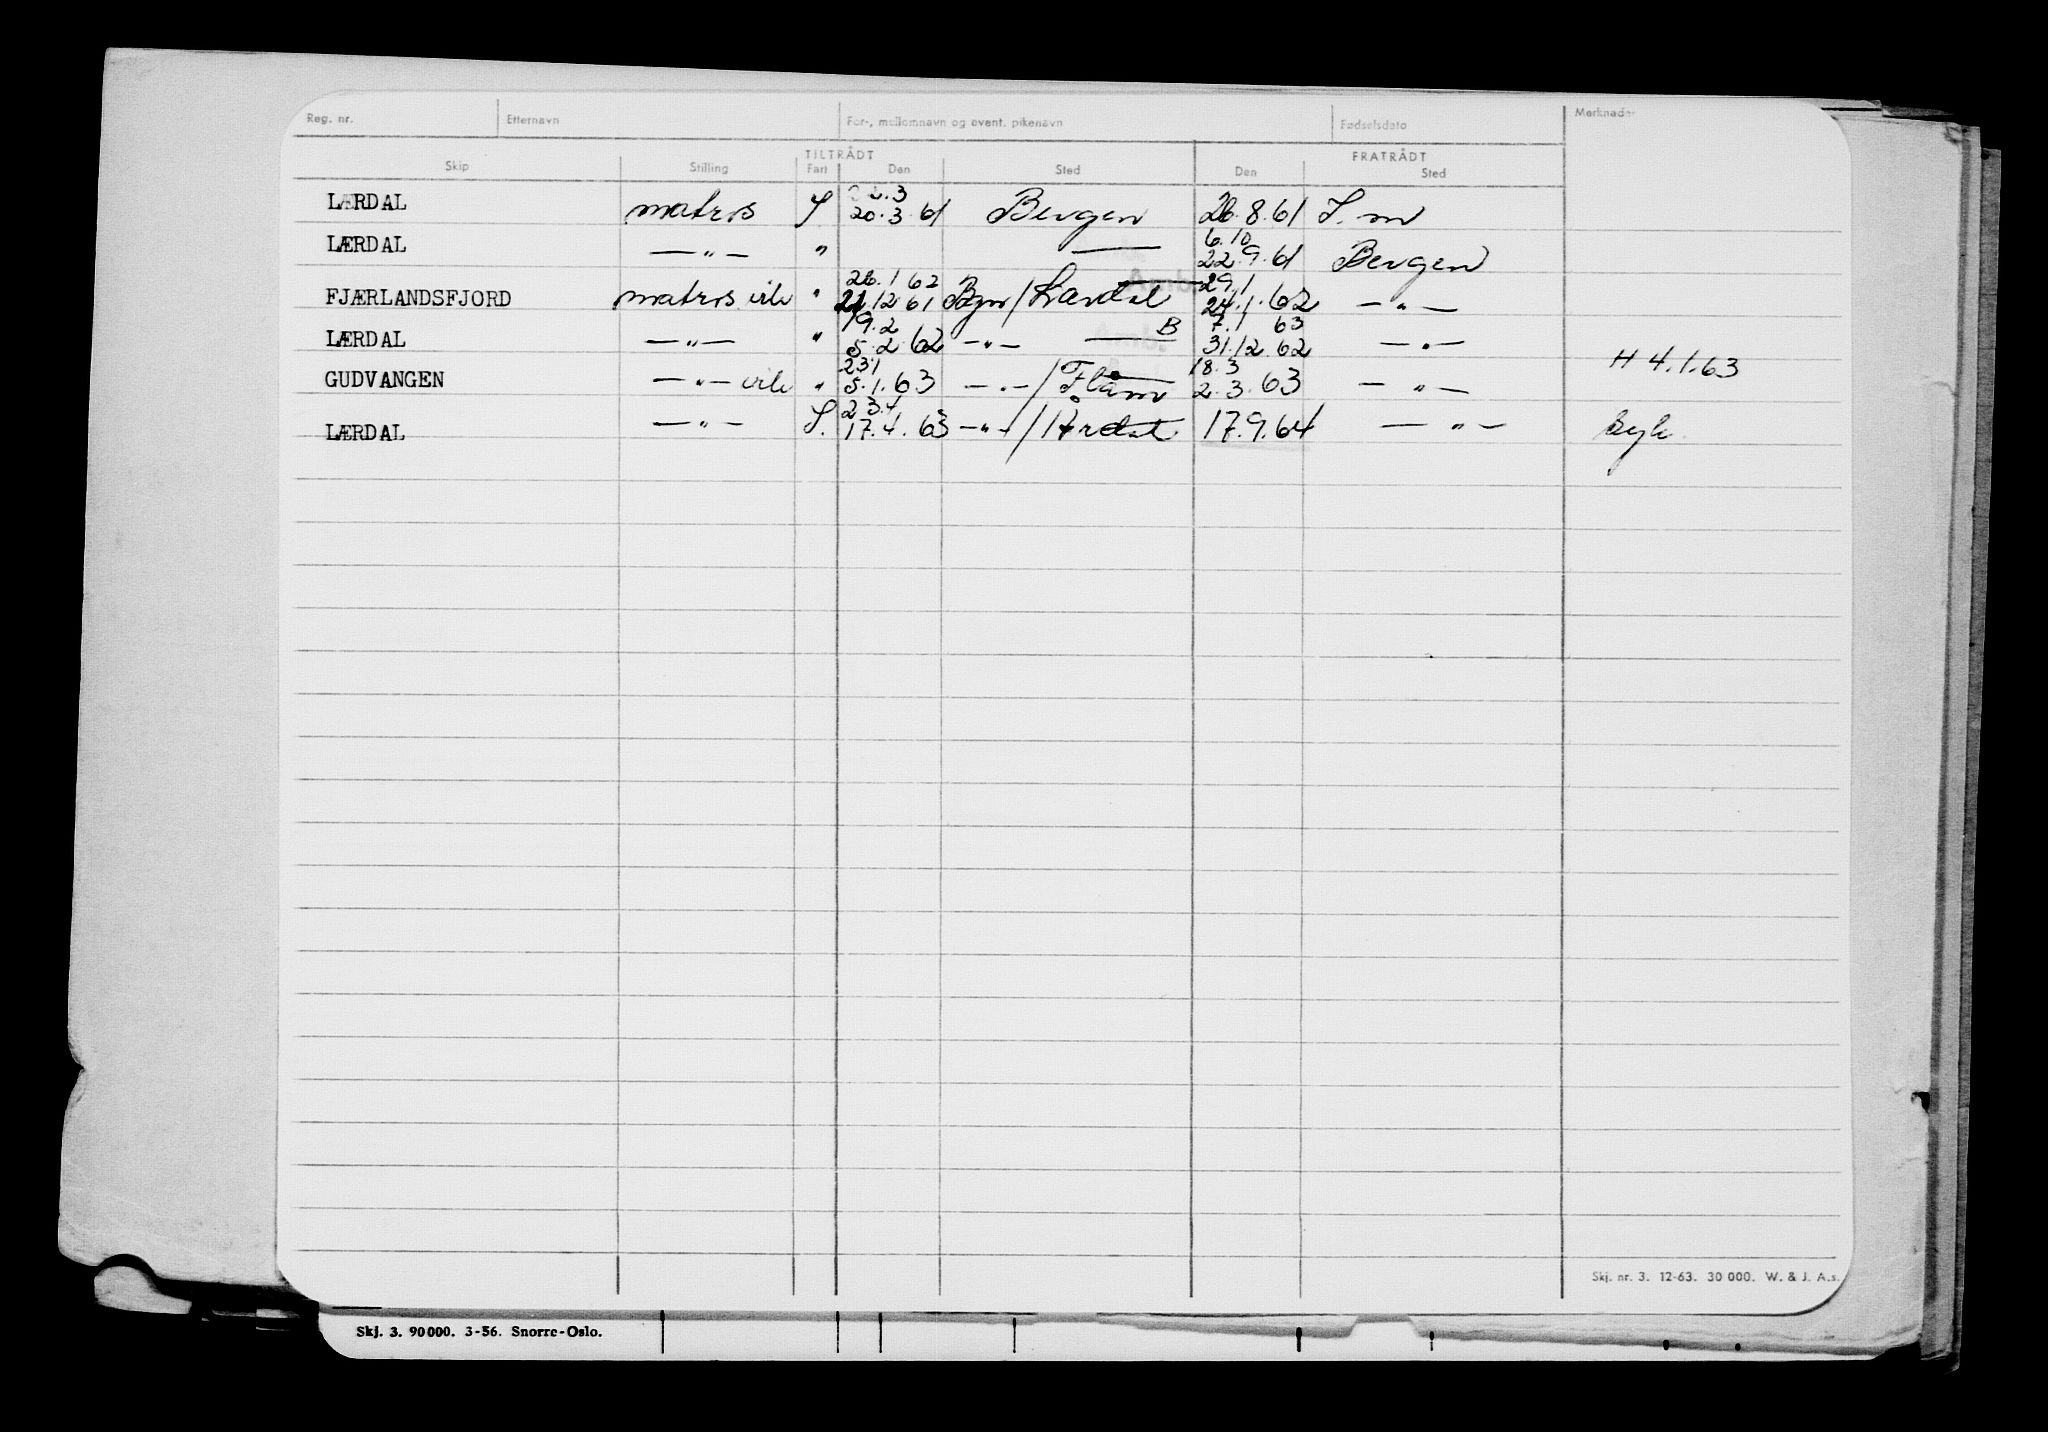 Reg. nr. Etternavn For-, mellomnavn og event. pikenavn Fødselsdato Merknader
TILTRÅDT FRATRÅDT
Skip Stilling Fart Den Sted Den Sted
LÆRDAL matros S. 20.3.61 Bergen 26.8.61 S. m
6.10
LÆRDAL — " — " — 22.9.61 Bergen
26.1 62 29.1
FJÆRLANDSFJORD matros vik " 21.12 61 Bgn / Lærdal 24.1.62 — " —
19.2 B 7.1 63
LÆRDAL — " — " 5.2.62 — " — 31.12.62 — " —
H 4.1.63
23.1 18.3
GUDVANGEN — " — vik " 5.1.63 — " — / Flåm 2.3.63 — " —
23.4
LÆRDAL — " — S. 17.4.63 — " — / Årdal 17.9.64 — " — Syk
Skj. nr. 3. 12-63. 30 000. W. & J. A.s.
Skj. 3. 90000. 3-56. Snorre-Oslo.